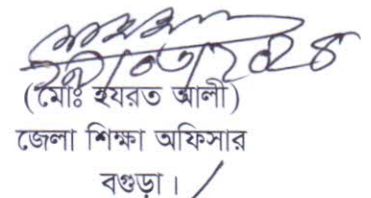 (মোঃ হযরত আলী)
জেলা শিক্ষা অফিসার
বগুড়া।